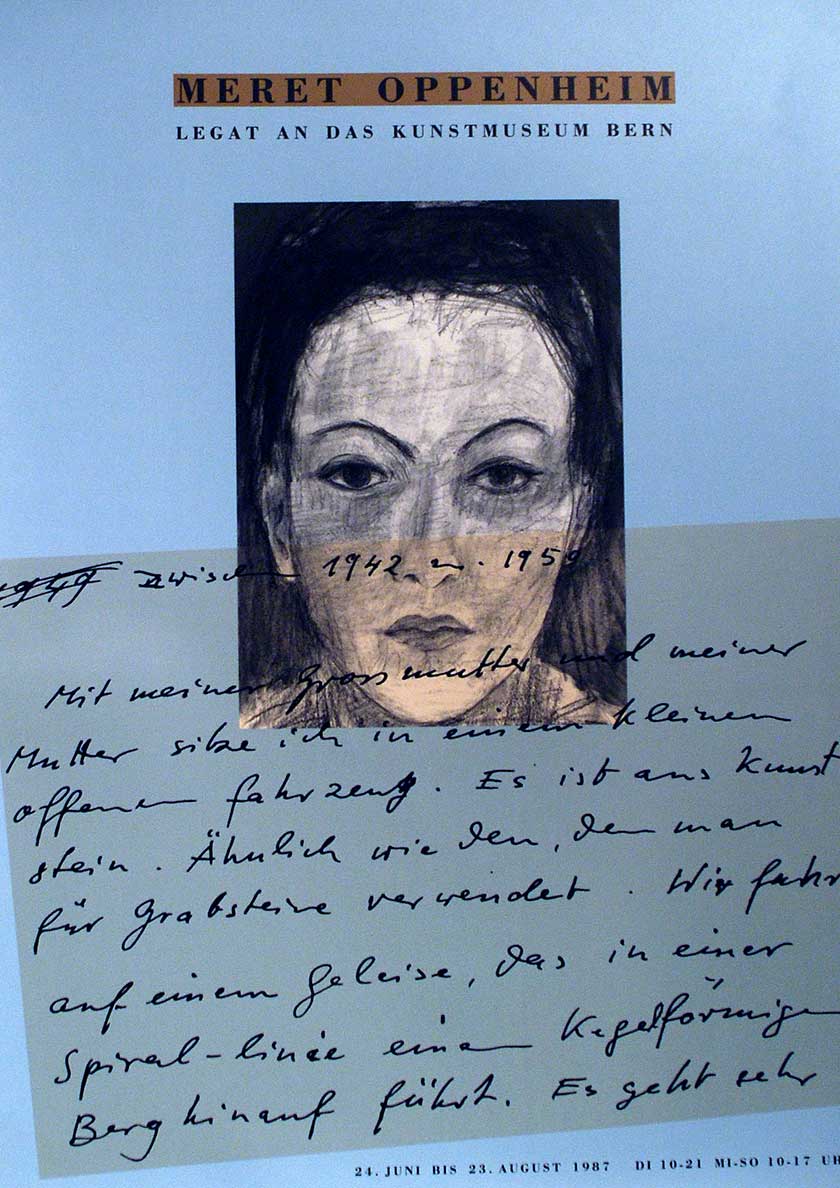 MERET OPPENHEIM
LEGAT AN DAS KUNSTMUSEUM BERN
1949 Zwischen 1942 u. 1950
Mit meiner Grossmutter und meiner
Mutter sitze ich in einem kleinen
offenen Fahrzeug. Es ist aus Kunst
stein. Ähnlich wie den, den man
für Grabsteine verwendet. Wir fahr
auf einem Geleise, das in einer
Spiral-linie einen Kegelförmigen
Berg hinauf führt. Es geht sehr
24. JUNI BIS 23. AUGUST 1987 DI 10-21 MI-SO 10-17 UH